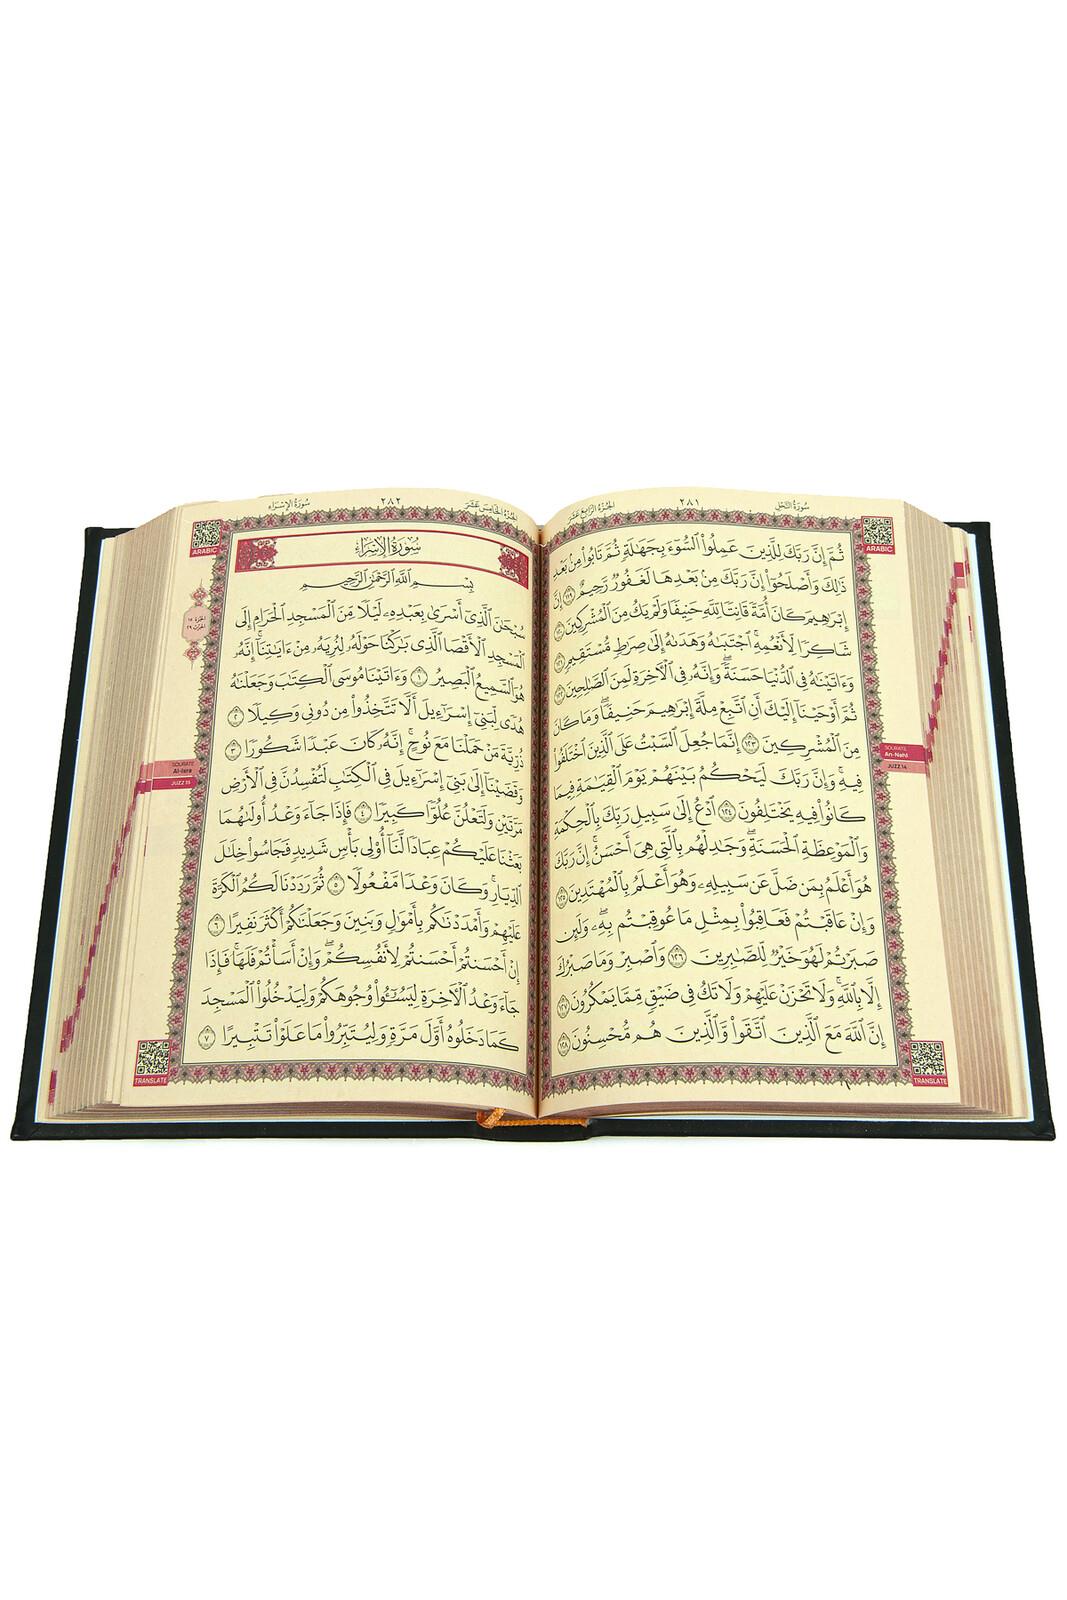 سُورَةُ النَّحْل
٢٨١
الجُزْءُ الرَّابِعَ عَشَرَ
ثُمَّ إِنَّ رَبَّكَ لِلَّذِينَ عَمِلُوا۟ ٱلسُّوٓءَ بِجَهَـٰلَةٍ ثُمَّ تَابُوا۟ مِنۢ بَعْدِ
ذَٰلِكَ وَأَصْلَحُوٓا۟ إِنَّ رَبَّكَ مِنۢ بَعْدِهَا لَغَفُورٌ رَّحِيمٌ ١١٩ إِنَّ
إِبْرَٰهِيمَ كَانَ أُمَّةً قَانِتًا لِّلَّهِ حَنِيفًا وَلَمْ يَكُ مِنَ ٱلْمُشْرِكِينَ ١٢٠
شَاكِرًا لِّأَنْعُمِهِ ۚ ٱجْتَبَىٰهُ وَهَدَىٰهُ إِلَىٰ صِرَٰطٍ مُّسْتَقِيمٍ ١٢١
وَءَاتَيْنَـٰهُ فِى ٱلدُّنْيَا حَسَنَةً ۖ وَإِنَّهُۥ فِى ٱلْـَٔاخِرَةِ لَمِنَ ٱلصَّـٰلِحِينَ ١٢٢
ثُمَّ أَوْحَيْنَآ إِلَيْكَ أَنِ ٱتَّبِعْ مِلَّةَ إِبْرَٰهِيمَ حَنِيفًا ۖ وَمَا كَانَ
مِنَ ٱلْمُشْرِكِينَ ١٢٣ إِنَّمَا جُعِلَ ٱلسَّبْتُ عَلَى ٱلَّذِينَ ٱخْتَلَفُوا۟
فِيهِ ۚ وَإِنَّ رَبَّكَ لَيَحْكُمُ بَيْنَهُمْ يَوْمَ ٱلْقِيَـٰمَةِ فِيمَا
كَانُوا۟ فِيهِ يَخْتَلِفُونَ ١٢٤ ٱدْعُ إِلَىٰ سَبِيلِ رَبِّكَ بِٱلْحِكْمَةِ
وَٱلْمَوْعِظَةِ ٱلْحَسَنَةِ ۖ وَجَـٰدِلْهُم بِٱلَّتِى هِىَ أَحْسَنُ ۚ إِنَّ رَبَّكَ
هُوَ أَعْلَمُ بِمَن ضَلَّ عَن سَبِيلِهِۦ ۖ وَهُوَ أَعْلَمُ بِٱلْمُهْتَدِينَ ١٢٥
وَإِنْ عَاقَبْتُمْ فَعَاقِبُوا۟ بِمِثْلِ مَا عُوقِبْتُم بِهِۦ ۖ وَلَئِن
صَبَرْتُمْ لَهُوَ خَيْرٌ لِّلصَّـٰبِرِينَ ١٢٦ وَٱصْبِرْ وَمَا صَبْرُكَ
إِلَّا بِٱللَّهِ ۚ وَلَا تَحْزَنْ عَلَيْهِمْ وَلَا تَكُ فِى ضَيْقٍ مِّمَّا يَمْكُرُونَ ١٢٧
إِنَّ ٱللَّهَ مَعَ ٱلَّذِينَ ٱتَّقَوا۟ وَّٱلَّذِينَ هُم مُّحْسِنُونَ ١٢٨
ARABIC
SOURATE
An-Nahl
JUZZ 14
TRANSLATE
الجُزْءُ الخَامِسَ عَشَرَ
٢٨٢
سُورَةُ الإِسْرَاء
سُورَةُ الإِسْرَاءِ
بِسْمِ ٱللَّهِ ٱلرَّحْمَـٰنِ ٱلرَّحِيمِ
سُبْحَـٰنَ ٱلَّذِىٓ أَسْرَىٰ بِعَبْدِهِۦ لَيْلًا مِّنَ ٱلْمَسْجِدِ ٱلْحَرَامِ إِلَى
ٱلْمَسْجِدِ ٱلْأَقْصَا ٱلَّذِى بَـٰرَكْنَا حَوْلَهُۥ لِنُرِيَهُۥ مِنْ ءَايَـٰتِنَآ ۚ إِنَّهُۥ
هُوَ ٱلسَّمِيعُ ٱلْبَصِيرُ ١ وَءَاتَيْنَا مُوسَى ٱلْكِتَـٰبَ وَجَعَلْنَـٰهُ
هُدًى لِّبَنِىٓ إِسْرَٰٓءِيلَ أَلَّا تَتَّخِذُوا۟ مِن دُونِى وَكِيلًا ٢
ذُرِّيَّةَ مَنْ حَمَلْنَا مَعَ نُوحٍ ۚ إِنَّهُۥ كَانَ عَبْدًا شَكُورًا ٣
وَقَضَيْنَآ إِلَىٰ بَنِىٓ إِسْرَٰٓءِيلَ فِى ٱلْكِتَـٰبِ لَتُفْسِدُنَّ فِى ٱلْأَرْضِ
مَرَّتَيْنِ وَلَتَعْلُنَّ عُلُوًّا كَبِيرًا ٤ فَإِذَا جَآءَ وَعْدُ أُولَىٰهُمَا
بَعَثْنَا عَلَيْكُمْ عِبَادًا لَّنَآ أُو۟لِى بَأْسٍ شَدِيدٍ فَجَاسُوا۟ خِلَـٰلَ
ٱلدِّيَارِ ۚ وَكَانَ وَعْدًا مَّفْعُولًا ٥ ثُمَّ رَدَدْنَا لَكُمُ ٱلْكَرَّةَ
عَلَيْهِمْ وَأَمْدَدْنَـٰكُم بِأَمْوَٰلٍ وَبَنِينَ وَجَعَلْنَـٰكُمْ أَكْثَرَ نَفِيرًا ٦
إِنْ أَحْسَنتُمْ أَحْسَنتُمْ لِأَنفُسِكُمْ ۖ وَإِنْ أَسَأْتُمْ فَلَهَا ۚ فَإِذَا
جَآءَ وَعْدُ ٱلْـَٔاخِرَةِ لِيَسُـۥٓـُٔوا۟ وُجُوهَكُمْ وَلِيَدْخُلُوا۟ ٱلْمَسْجِدَ
كَمَا دَخَلُوهُ أَوَّلَ مَرَّةٍ وَلِيُتَبِّرُوا۟ مَا عَلَوْا۟ تَتْبِيرًا ٧
ARABIC
الجُزْءُ ١٥
الحِزْبُ ٢٩
SOURATE
Al-Isra
JUZZ 15
TRANSLATE